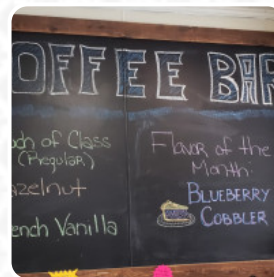 OFFEE BAR
uch of Class
(Regular)
azelnut
ench Vanilla
Flavor of the
Month:
BLUEBERRY
COBBLER